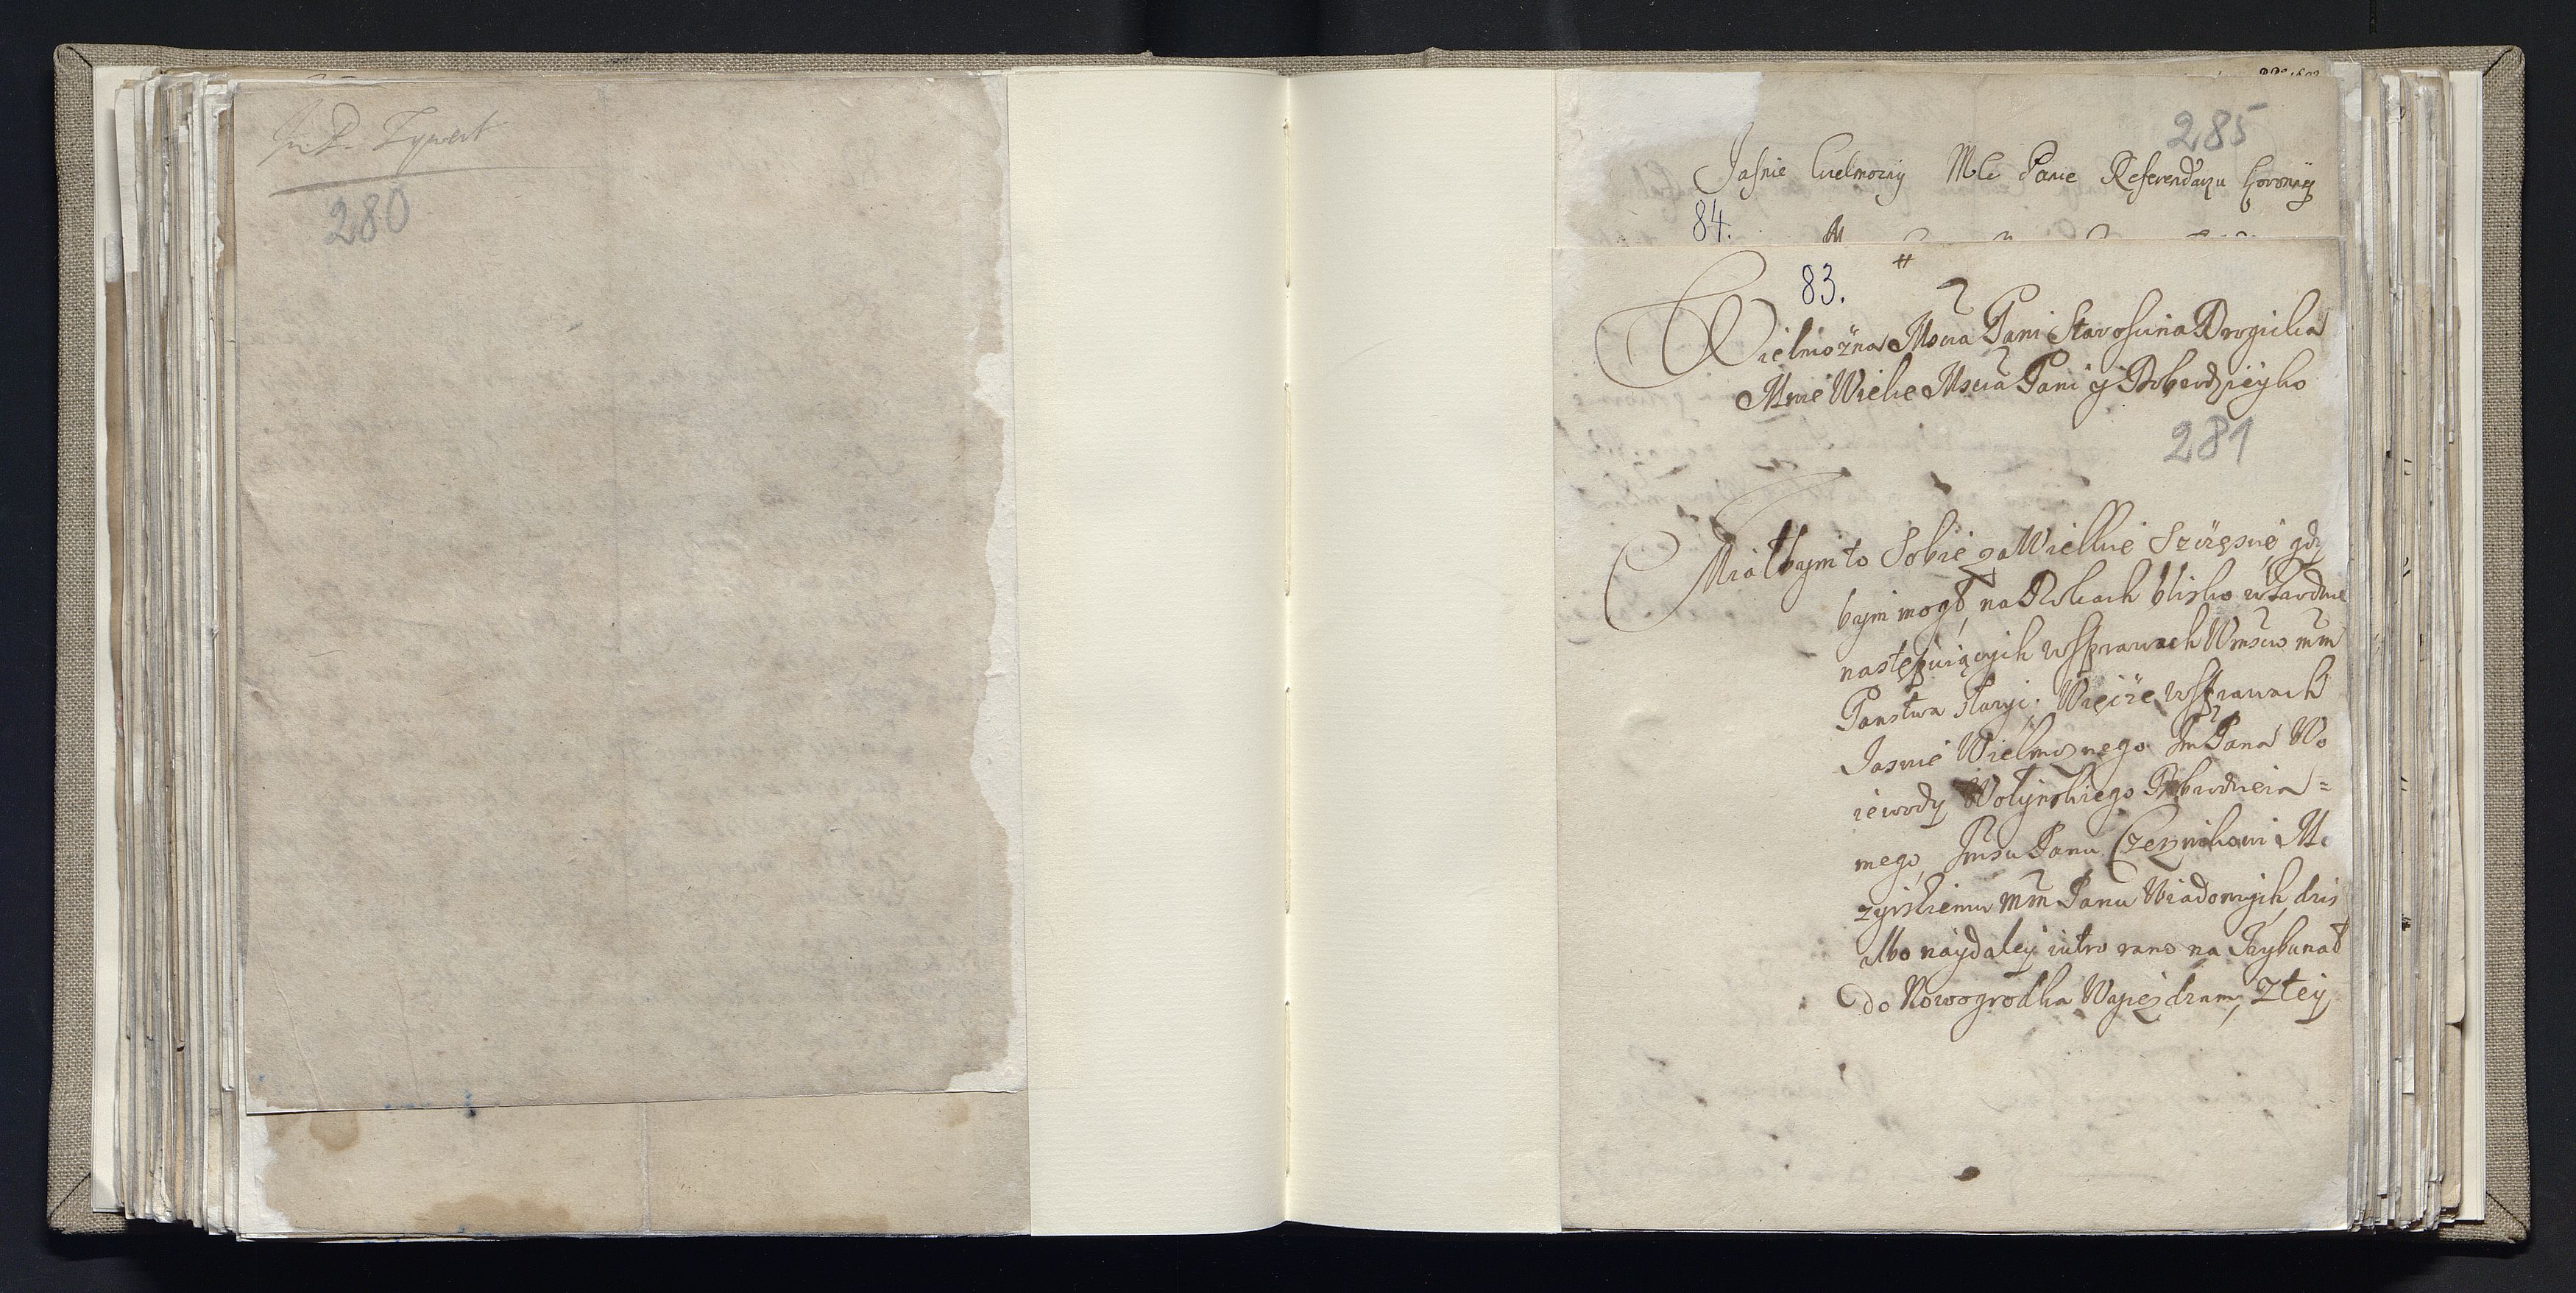 280
285
Jasnie Wielmozny Mci Panie Referendarzu Koronny
84.
83.
Wielmożna Mscia Pani Starościna Drogicka
Mnie Wielce Mscia Pani y Dobrodzieyko
281
Miałbym to Sobie za Wielkie Szczęscie, gdy
bym mogł, na Rokach blisko
następuiących w Sprawach Wmsciow mm
Panstwa służyc. Więc że w Sprawach
Jasnie Wielmoznego Im Pana Wo
iewody Wołynskiego Dobrodzieia =
mego, Jmsci Panu Czesnikowi M
zyrskiemu mm Panu Wiadomych, dzis
Albo naydaley iutro rano na Trybunał
do Nowogrodka Wyiezdzam, Z tey